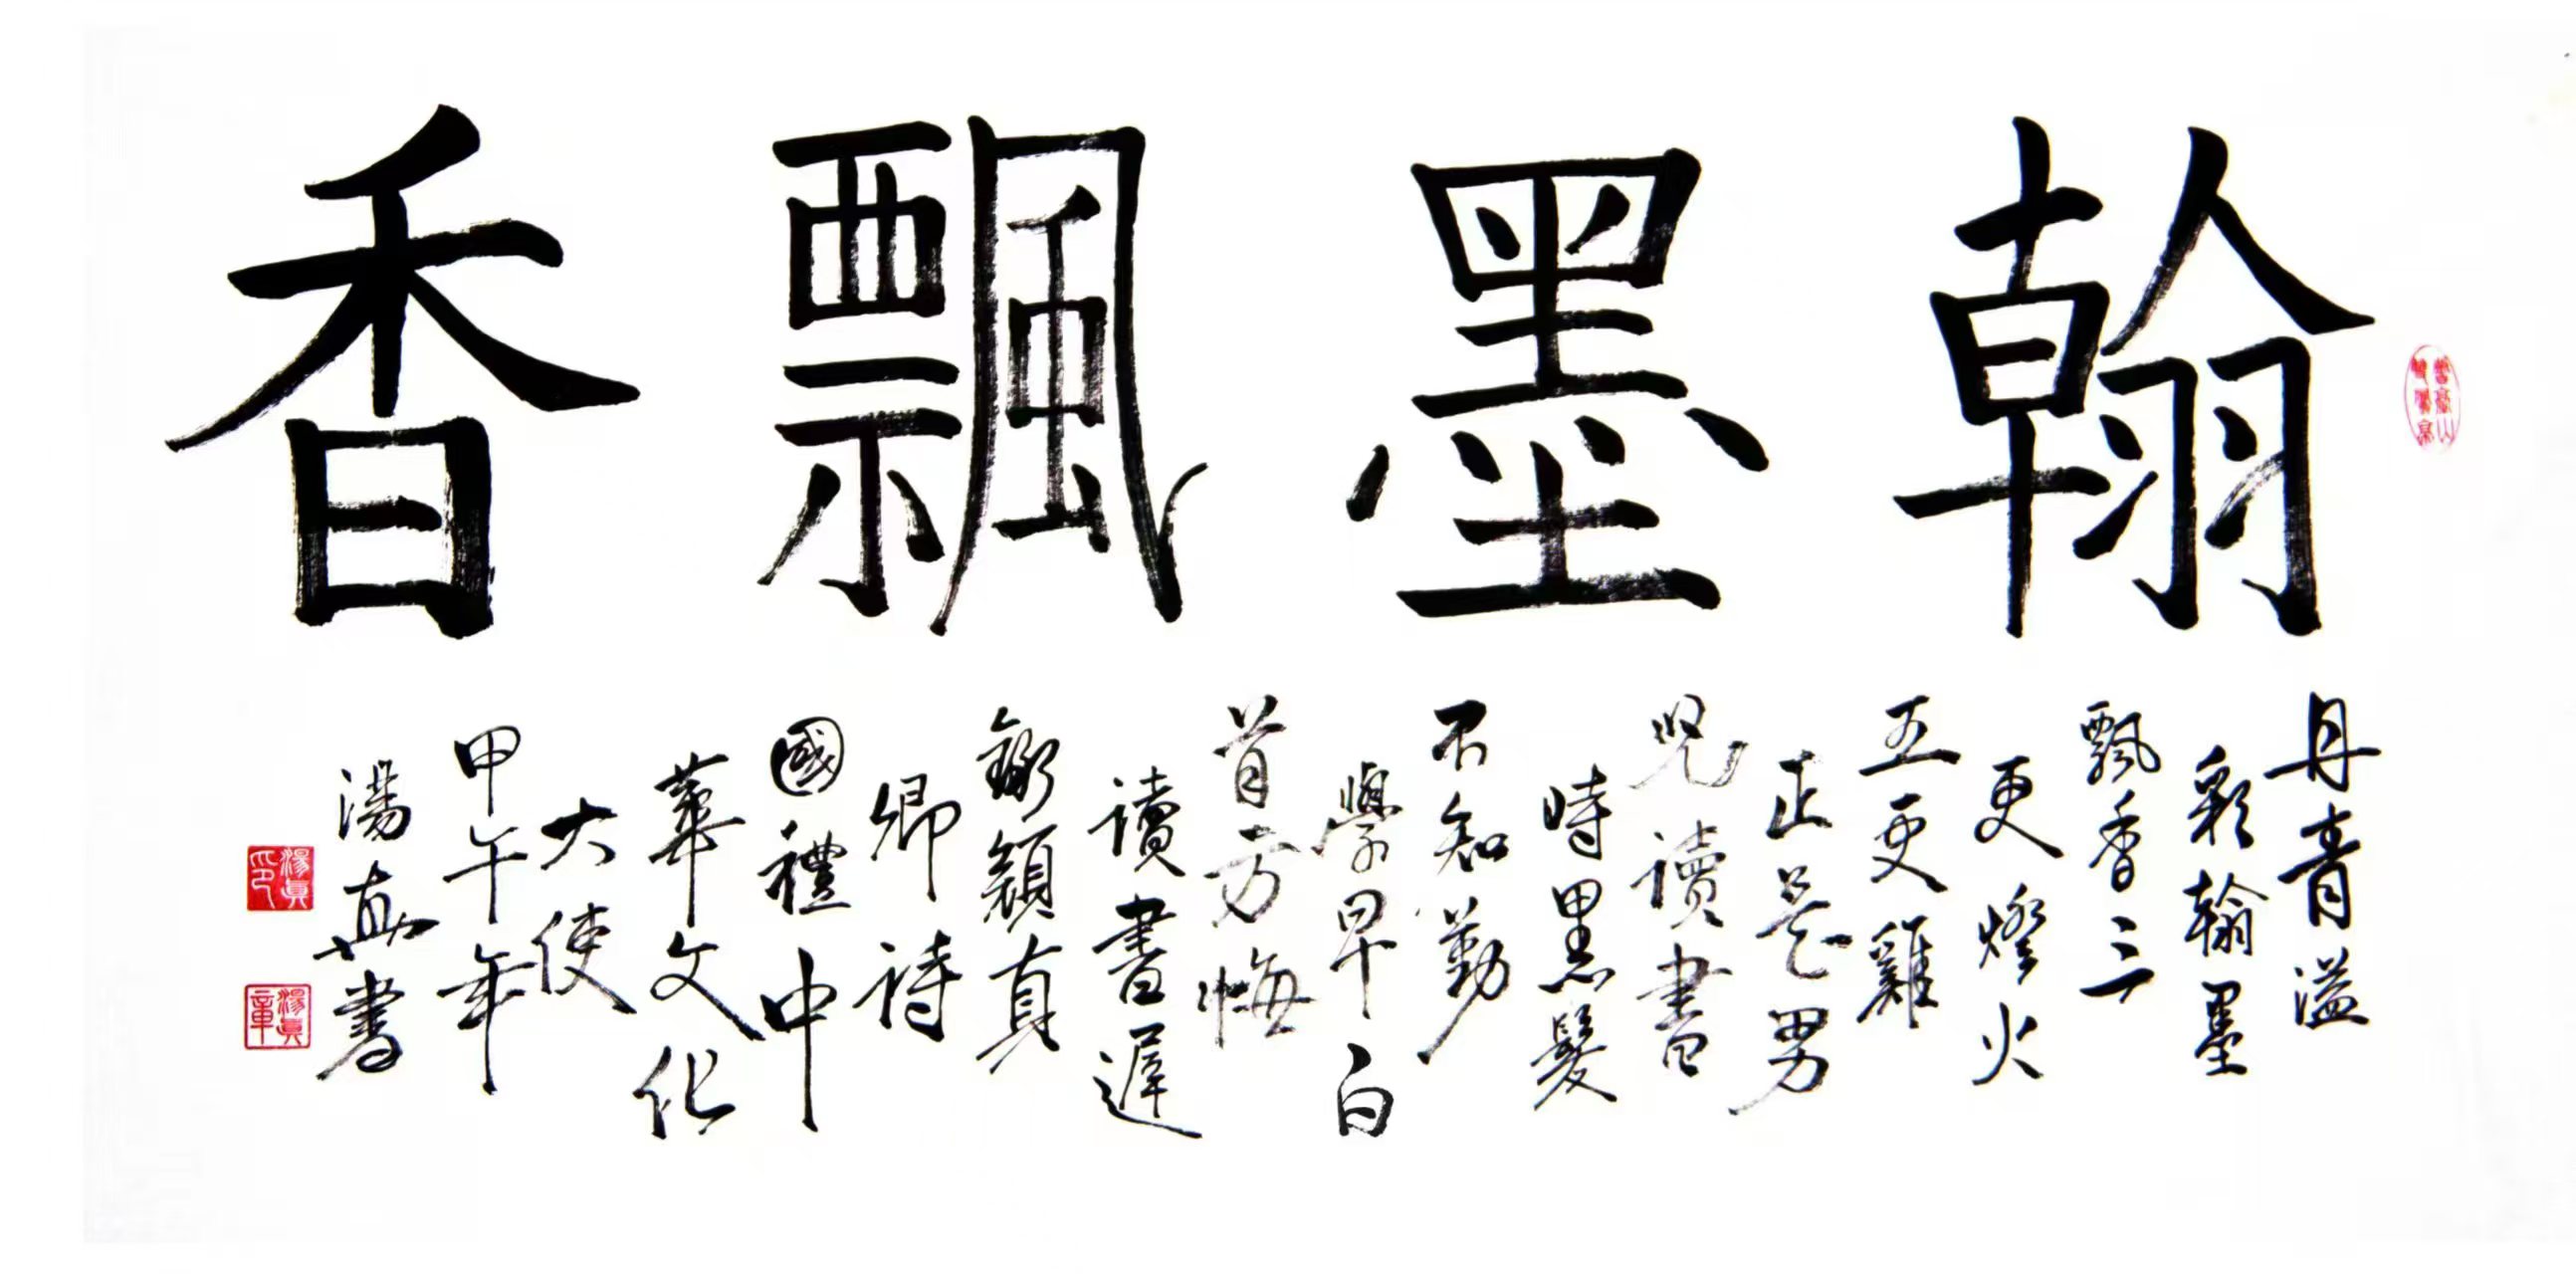 翰墨飄香
丹青溢
彩翰墨
飄香三
更燈火
五更雞
正是男
兒讀書
時黑髮
不知勤
學早白
首方悔
讀書遲
錄顏真
卿詩
國禮中
華文化
大使
甲午年
湯真書
湯真印
湯真章